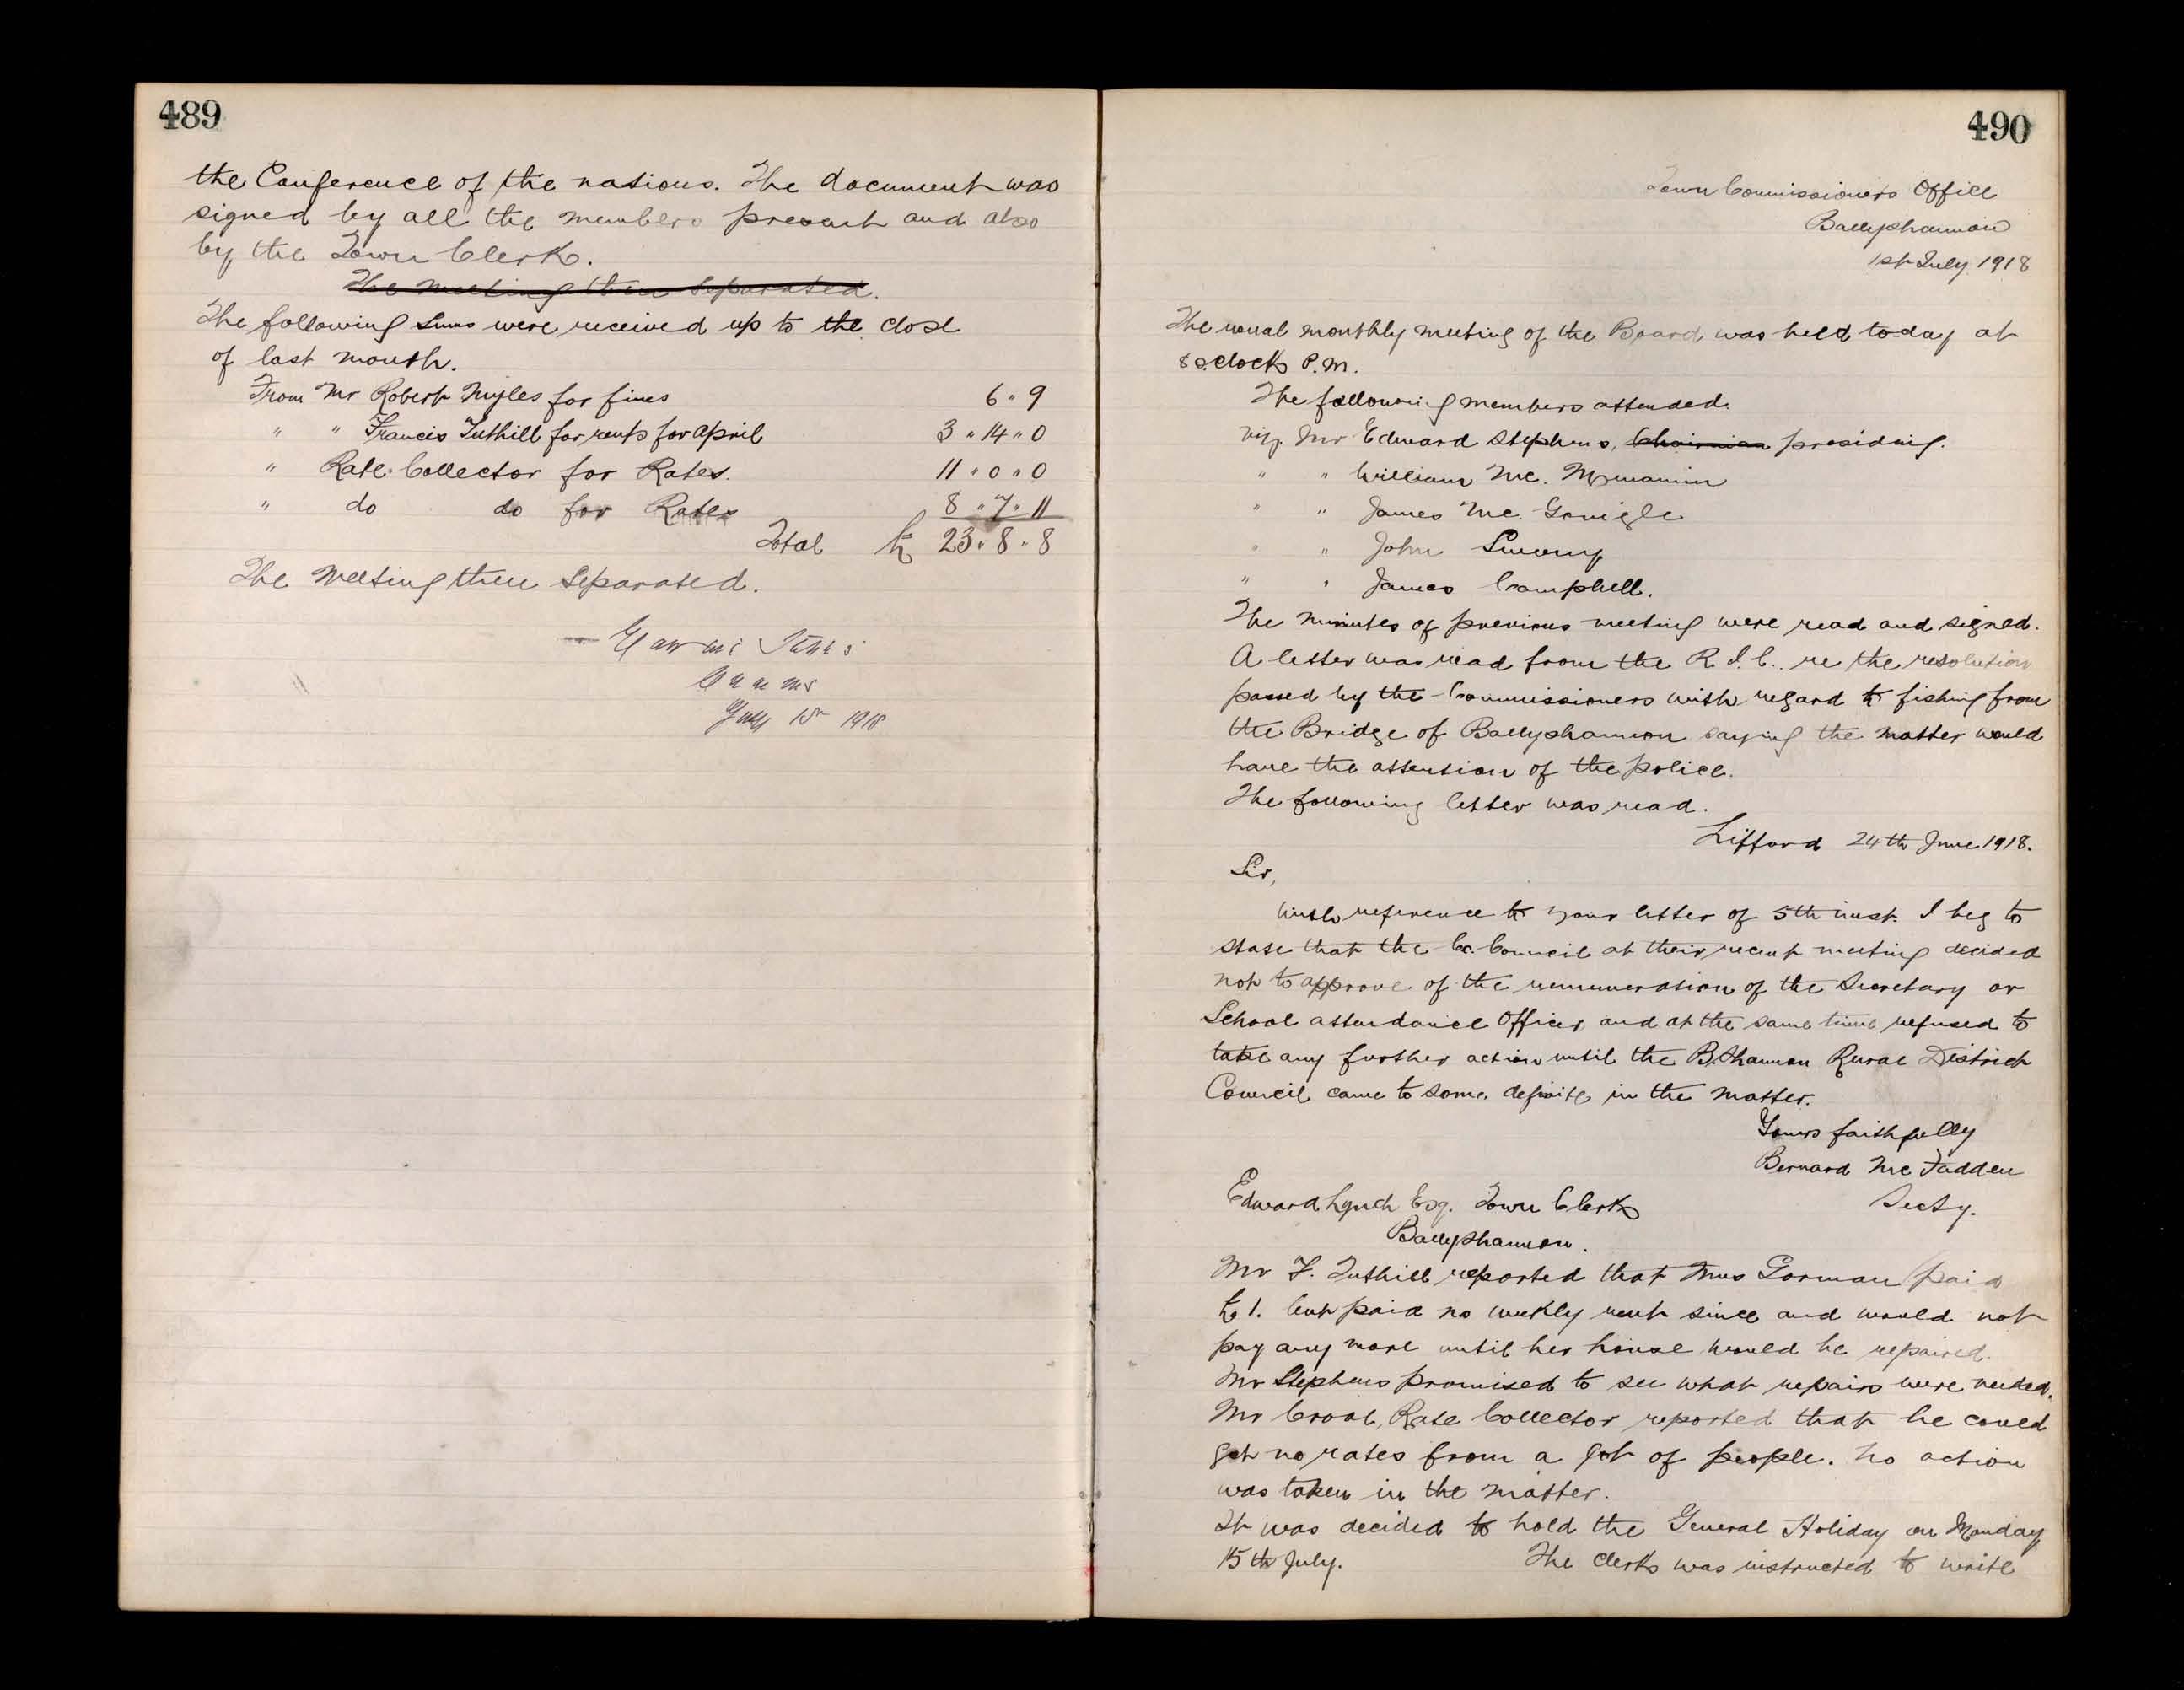 489
the Conference of the nations. The document was
signed by all the members present and also
by the Town Clerk.
The meeting then separated.
The following sums were received up to the close
of last month.
From Mr Robert Myles for fines 6 " 9
" " Francis Tuthill for rents for April 3 " 14 " 0
" Rate Collector for Rates. 11 " 0 " 0
" do do for Rates 8 " 7 " 11
Total £ 23 " 8 " 8
The Meeting then Separated.
July 1st 1918
490
Town Commissioners Office
Ballyshannon
1st July 1918
The usual monthly meeting of the Board was held to-day at
8 o.clock P.M.
The following members attended.
viz. Mr Edward Stephens, Chairman presiding.
" " William Mc. Menamin
" " James Mc. Gonigle
" " John Sweeny
" " James Campbell.
The minutes of previous meeting were read and signed.
A letter was read from the R.I.C. re the resolution
passed by the Commissioners with regard to fishing from
the Bridge of Ballyshannon saying the matter would
have the attention of the police.
The following letter was read.
Lifford 24th June 1918.
Sir,
With reference to your letter of 5th inst. I beg to
state that the Co. Council at their recent meeting decided
not to approve of the remuneration of the Secretary or
School attendance Officer, and at the same time refused to
take any further action until the B.Shannon Rural District
Council came to some definite in the matter.
Yours faithfully
Bernard Mc Fadden
Secty.
Edward Lynch Esq. Town Clerk
Ballyshannon.
Mr F. Tuthill reported that Mrs Gorman paid
£1. but paid no weekly rent since and would not
pay any more until her house would be repaired.
Mr Stephens promised to see what repairs were needed.
Mr Croal, Rate Collector reported that he could
get no rates from a lot of people. No action
was taken in the matter.
It was decided to hold the General Holiday on Monday
15th July. The Clerk was instructed to write